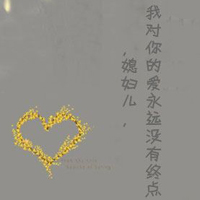 我对你的爱永远没有终点
，媳妇儿，